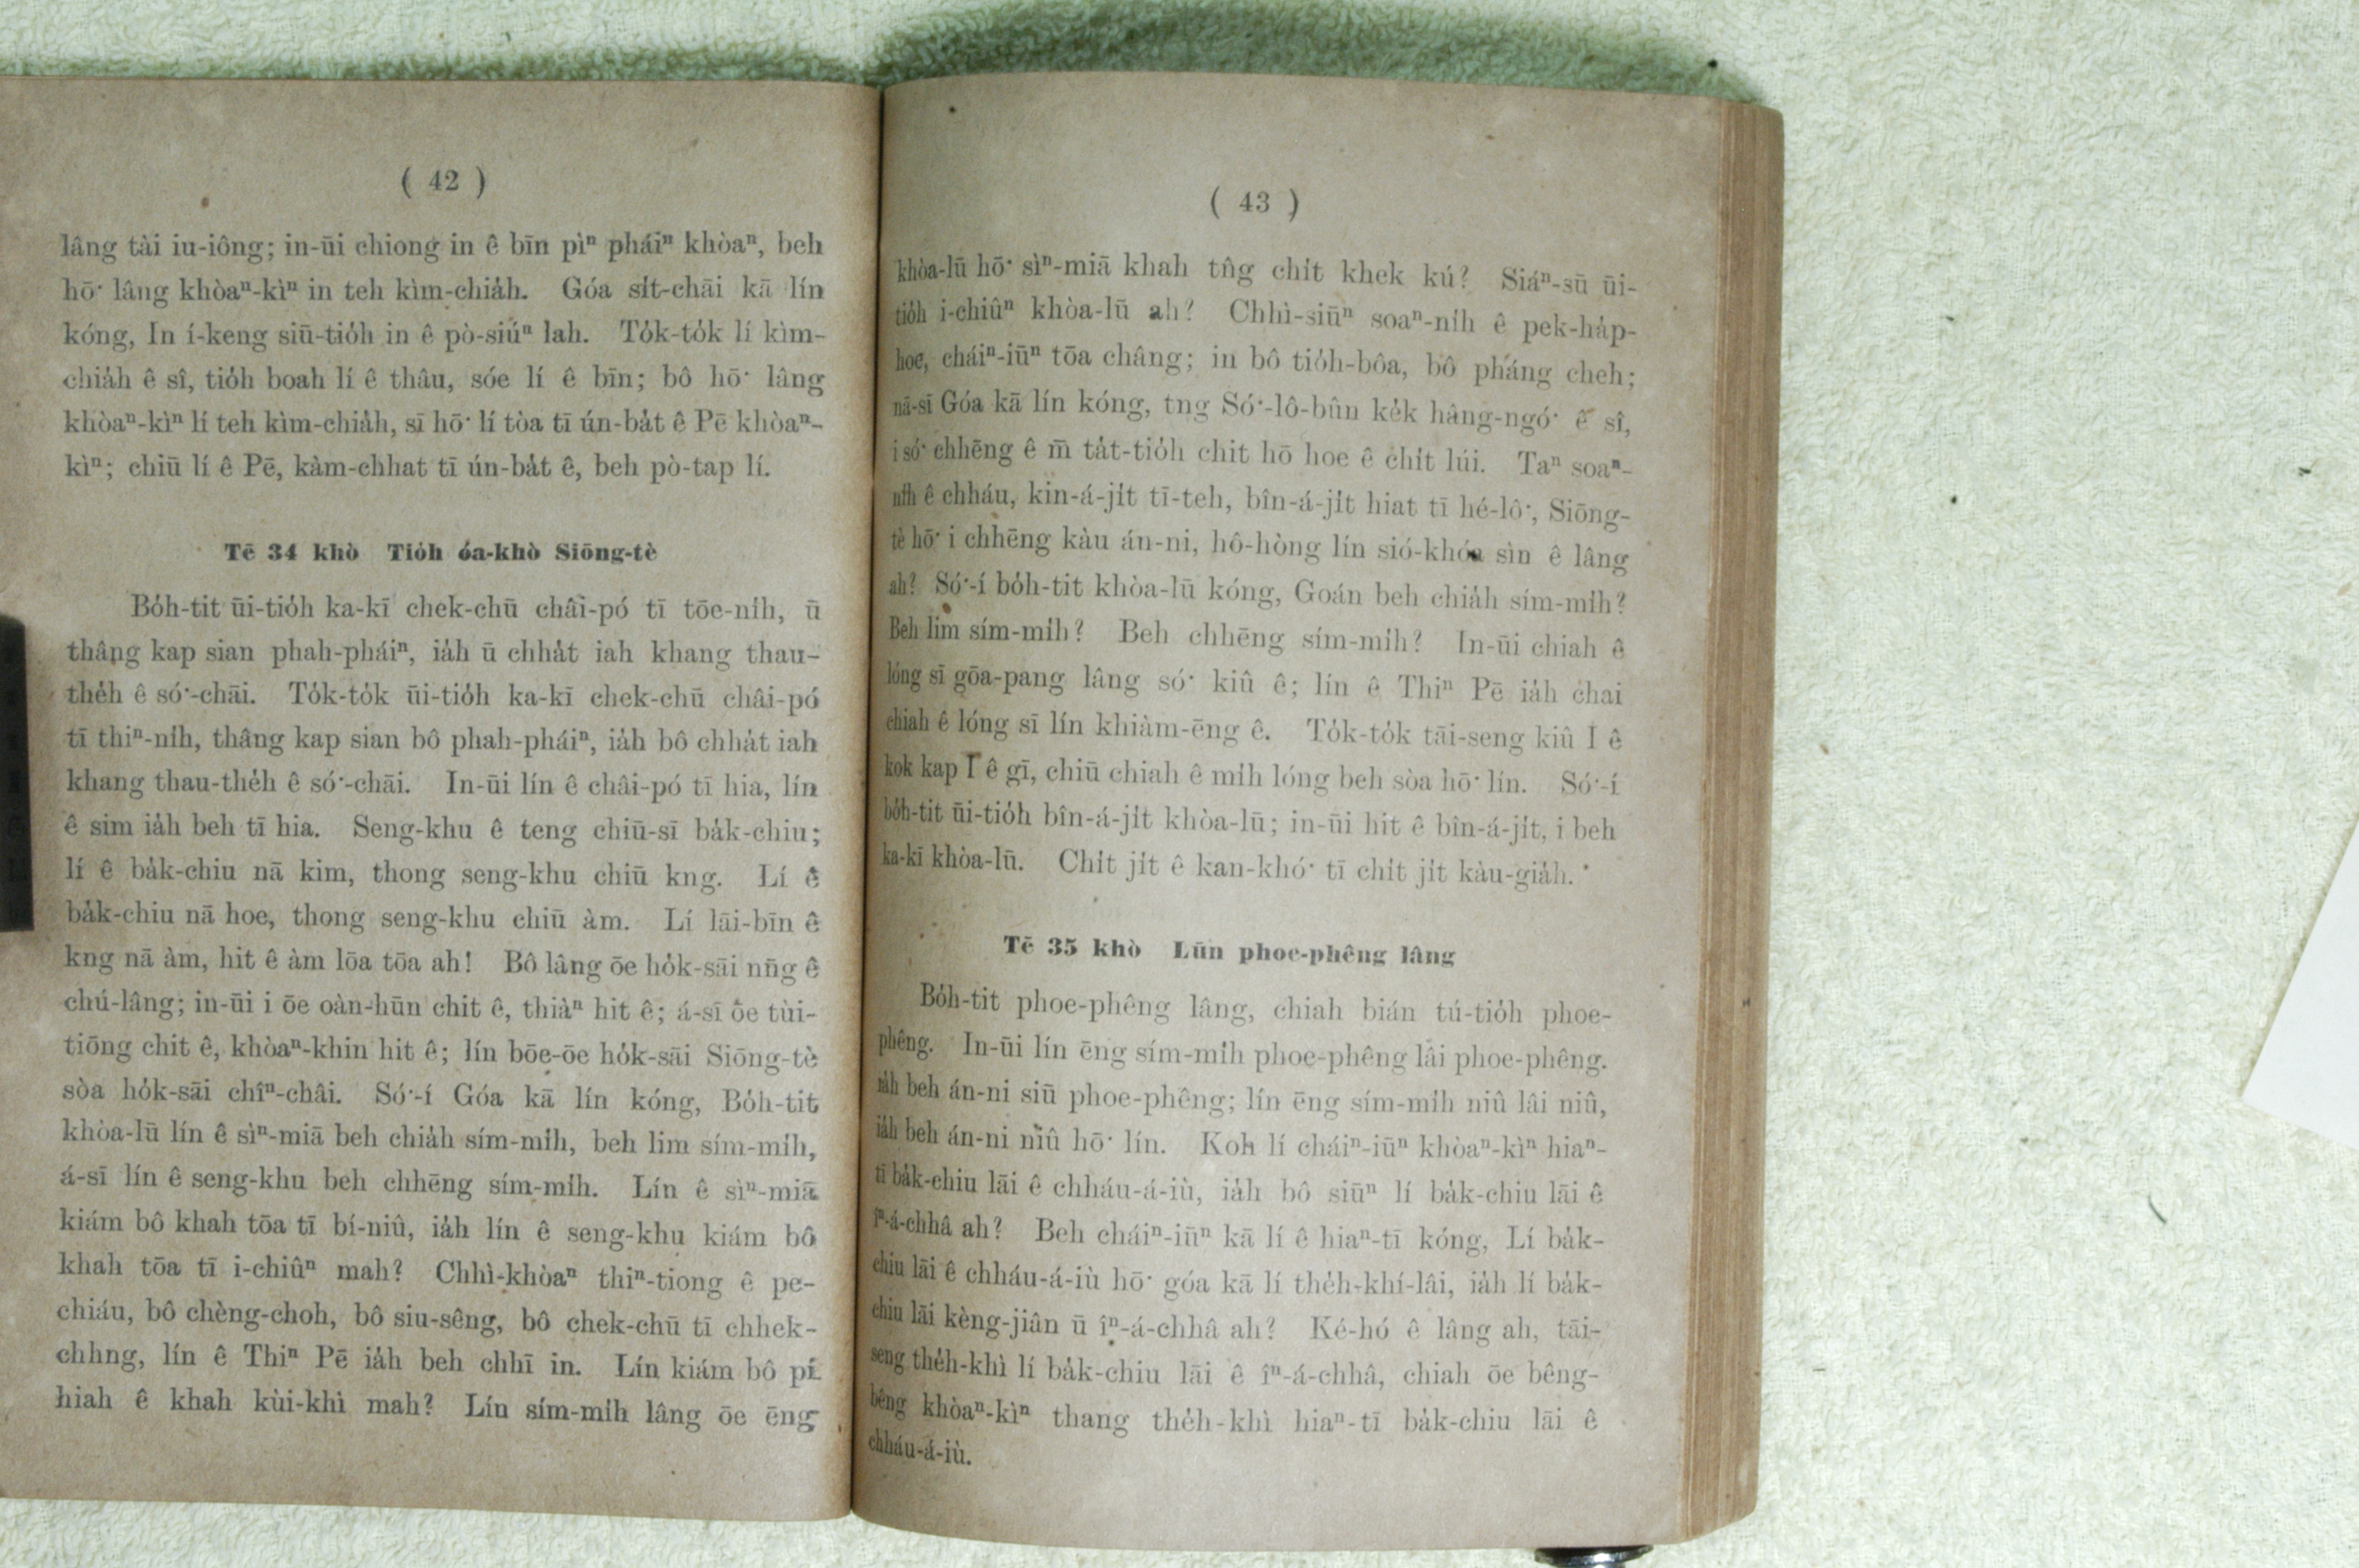 ( 42 )
lâng tài iu-iông; in-ūi chiong in ê bīn pìⁿ pháiⁿ khòaⁿ, beh
hō͘ lâng khòaⁿ-kìⁿ in teh kìm-chia̍h. Góa si̍t-chāi kā lín
kóng, In í-keng siū-tio̍h in ê pò-siúⁿ lah. To̍k-to̍k lí kìm-
chia̍h ê sî, tio̍h boah lí ê thâu, sóe lí ê bīn; bô hō͘ lâng
khòaⁿ-kìⁿ lí teh kìm-chia̍h, sī hō͘ lí tòa tī ún-ba̍t ê Pē khòaⁿ-
kìⁿ; chiū lí ê Pē, kàm-chhat tī ún-ba̍t ê, beh pò-tap lí.
Tē 34 khò Tio̍h óa-khò Siōng-tè
Bo̍h-tit ūi-tio̍h ka-kī chek-chū châi-pó tī tōe-ni̍h, ū
thâng kap sian phah-pháiⁿ, ia̍h ū chha̍t iah khang thau-
the̍h ê só͘-chāi. To̍k-to̍k ūi-tio̍h ka-kī chek-chū châi-pó
tī thiⁿ-ni̍h, thâng kap sian bô phah-pháiⁿ, ia̍h bô chha̍t iah
khang thau-the̍h ê só͘-chāi. In-ūi lín ê châi-pó tī hia, lín
ê sim ia̍h beh tī hia. Seng-khu ê teng chiū-sī ba̍k-chiu;
lí ê ba̍k-chiu nā kim, thong seng-khu chiū kng. Lí ê
ba̍k-chiu nā hoe, thong seng-khu chiū àm. Lí lāi-bīn ê
kng nā àm, hit ê àm lōa tōa ah! Bô lâng ōe ho̍k-sāi nn̄g ê
chú-lâng; in-ūi i ōe oàn-hūn chit ê, thiàⁿ hit ê; á-sī ōe tùi-
tiōng chit ê, khòaⁿ-khin hit ê; lín bōe-ōe ho̍k-sāi Siōng-tè
sòa ho̍k-sāi chîⁿ-châi. Só͘-í Góa kā lín kóng, Bo̍h-tit
khòa-lū lín ê sìⁿ-miā beh chia̍h sím-mi̍h, beh lim sím-mi̍h,
á-sī lín ê seng-khu beh chhēng sím-mi̍h. Lín ê sìⁿ-miā
kiám bô khah tōa tī bí-niû, ia̍h lín ê seng-khu kiám bô
khah tōa tī i-chiûⁿ mah? Chhì-khòaⁿ thiⁿ-tiong ê pe-
chiáu, bô chèng-choh, bô siu-sêng, bô chek-chū tī chhek-
chhng, lín ê Thiⁿ Pē ia̍h beh chhī in. Lín kiám bô pí
hiah ê khah kùi-khì mah? Lín sím-mi̍h lâng ōe ēng
( 43 )
khòa-lū hō͘ sìⁿ-miā khah tn̂g chi̍t khek kú? Siáⁿ-sū ūi-
tio̍h i-chiûⁿ khòa-lū ah? Chhì-siūⁿ soaⁿ-ni̍h ê pek-ha̍p-
hoe, cháiⁿ-iūⁿ tōa châng; in bô tio̍h-bôa, bô pháng cheh;
nā-sī Góa kā lín kóng, tng Só͘-lô-bûn ke̍k hâng-ngó͘ ê sî,
i só͘ chhēng ê m̄ ta̍t-tio̍h chit hō hoe ê chi̍t lúi. Taⁿ soaⁿ-
ni̍h ê chháu, kin-á-ji̍t tī-teh, bîn-á-ji̍t hiat tī hé-lô͘, Siōng-
tè hō͘ i chhēng kàu án-ni, hô-hòng lín sió-khóa sìn ê lâng
ah? Só͘-í bo̍h-tit khòa-lū kóng, Goán beh chia̍h sím-mi̍h?
Beh lim sím-mi̍h? Beh chhēng sím-mi̍h? In-ūi chiah ê
lóng sī gōa-pang lâng só͘ kiû ê; lín ê Thiⁿ Pē ia̍h chai
chiah ê lóng sī lín khiàm-ēng ê. To̍k-to̍k tāi-seng kiû I ê
kok kap I ê gī, chiū chiah ê mi̍h lóng beh sòa hō͘ lín. Só͘-í
bo̍h-tit ūi-tio̍h bîn-á-ji̍t khòa-lū; in-ūi hit ê bîn-á-ji̍t, i beh
ka-kī khòa-lū. Chi̍t ji̍t ê kan-khó͘ tī chi̍t ji̍t kàu-gia̍h.
Tē 35 khò Lūn phoe-phêng lâng
Bo̍h-tit phoe-phêng lâng, chiah bián tú-tio̍h phoe-
phêng. In-ūi lín ēng sím-mi̍h phoe-phêng lâi phoe-phêng.
ia̍h beh án-ni siū phoe-phêng; lín ēng sím-mi̍h niû lâi niû,
ia̍h beh án-ni niû hō͘ lín. Koh lí cháiⁿ-iūⁿ khòaⁿ-kìⁿ hiaⁿ-
tī ba̍k-chiu lāi ê chháu-á-iù, ia̍h bô siūⁿ lí ba̍k-chiu lāi ê
îⁿ-á-chhâ ah? Beh cháiⁿ-iūⁿ kā lí ê hiaⁿ-tī kóng, Lí ba̍k-
chiu lāi ê chháu-á-iù hō͘ góa kā lí the̍h-khí-lâi, ia̍h lí ba̍k-
chiu lāi kèng-jiân ū îⁿ-á-chhâ ah? Ké-hó ê lâng ah, tāi-
seng the̍h-khì lí ba̍k-chiu lāi ê îⁿ-á-chhâ, chiah ōe bêng-
bêng khòaⁿ-kìⁿ thang the̍h-khì hiaⁿ-tī ba̍k-chiu lāi ê
chháu-á-iù.